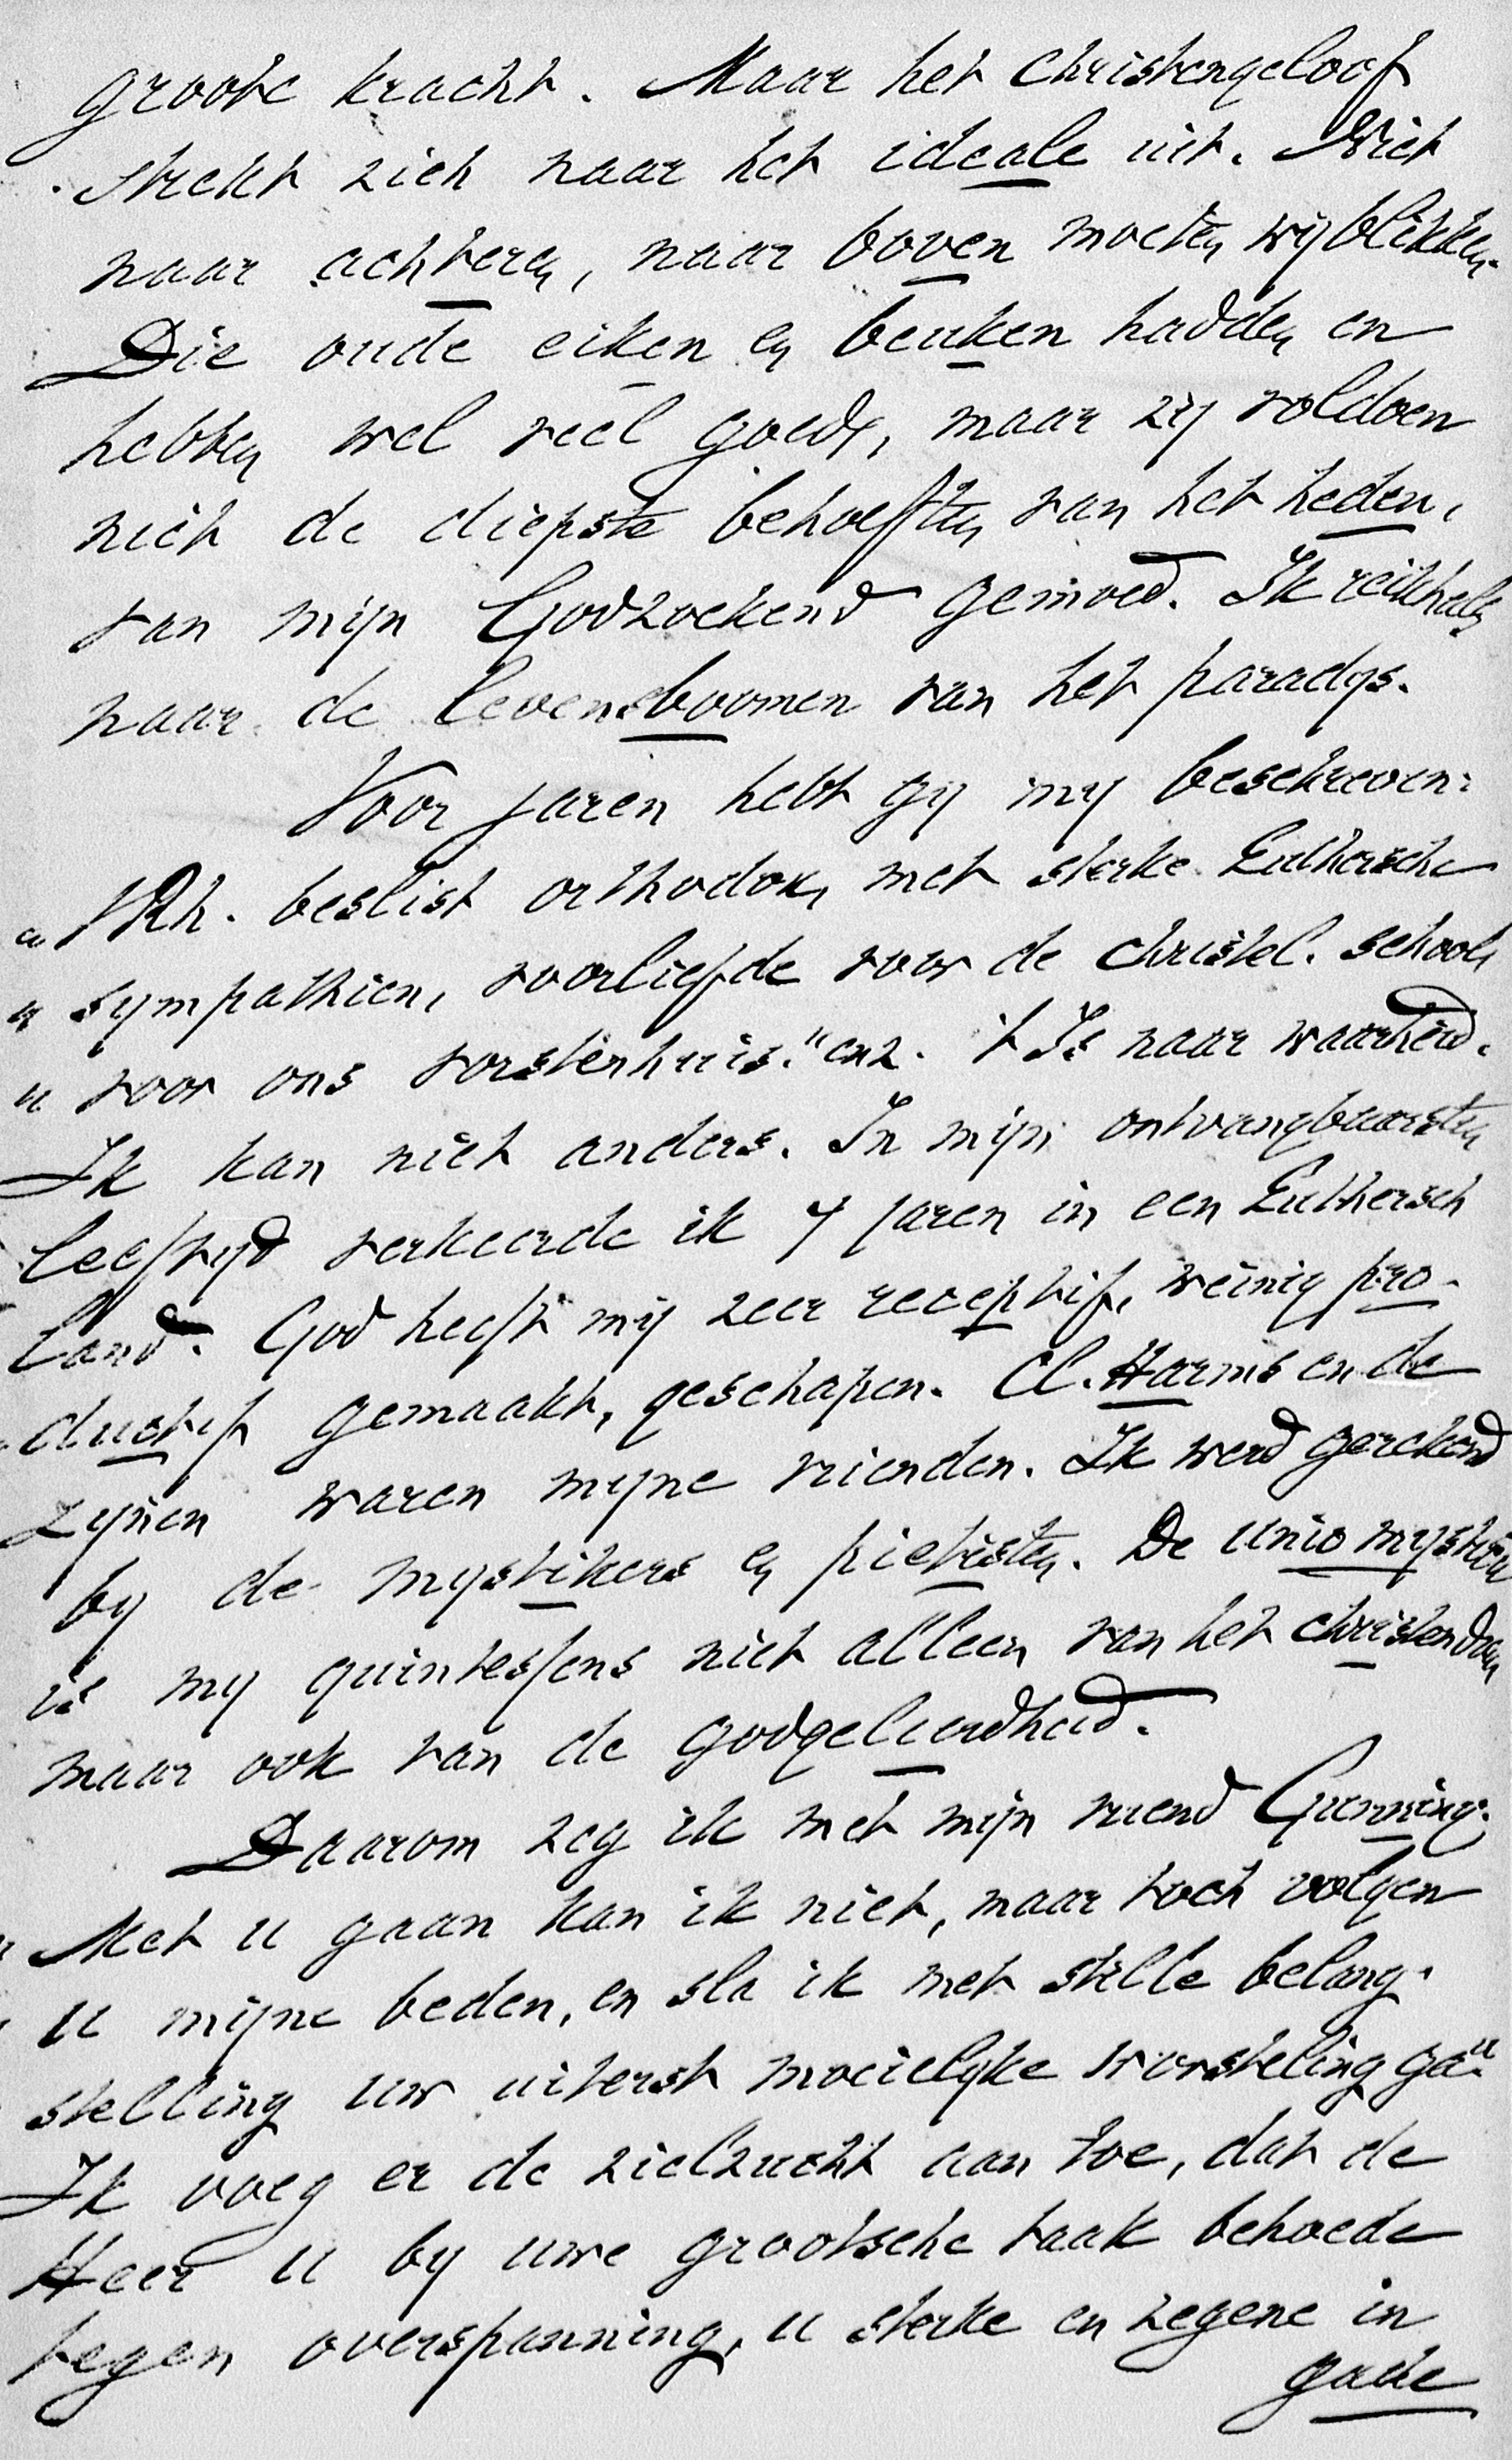 groote kracht. Maar het Christengeloof
strekt zich naar het ideale uit. Niet
naar achteren, naar boven moeten wij blikken.
Die oude eiken en beuken hadden en
hebben wel veel goeds, maar zij voldoen
niet de diepste behoeften van het heden,
van mijn Godzoekend gemoed. Ik reikhals
naar de levensboomen van het paradijs.
Voor jaren hebt gij mij beschreven:
"VRh. beslist orthodox, met sterke Luthersche
"sympathien, voorliefde voor de christel. school,
"voor ons vorstenhuis." enz. 't Is naar waarheid.
Ik kan niet anders. In mijn ontvangbaarsten
leeftijd verkeerde ik 7 jaren in een Luthersch
land. God heeft mij zeer receptif, weinig pro-
ductif gemaakt, geschapen. Cl. Harms en de
zijnen waren mijne vrienden. Ik werd gerekend
bij de mystikers en pietisten. De unio mystica
is mij quintessens niet alleen van het christendom
maar ook van de godgeleerdheid.
Daarom zeg ik met mijn vriend Gunning:
"Met u gaan kan ik niet, maar toch volgen
"u mijne beden, en sla ik met stille belang-
"stelling uw uiterst moeielijke worsteling ga."
Ik voeg er de zielzucht aan toe, dat de
Heer u bij uwe grootsche taak behoede
tegen overspanning, u sterke en zegene in
gade